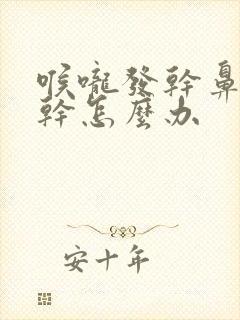 喉嚨發幹鼻
幹怎麼办
安十年